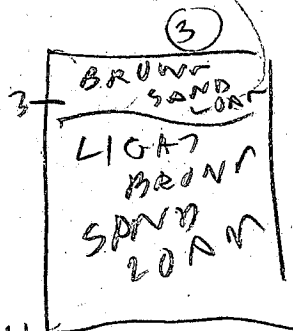 3
BROWN
SAND
3 LOAM
LIGHT
BROWN
SAND
LOAM